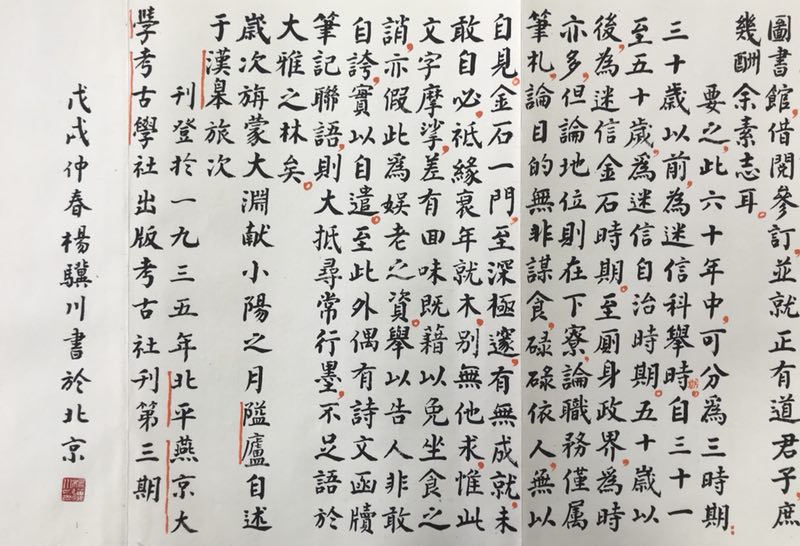 圖書館,借閱參訂,並就正有道君子,庶
幾酬余素志耳。
要之,此六十年中,可分為三時期:
三十歲以前,為迷信科舉時期;自三十一
至五十歲,為迷信自治時期。五十歲以
後,為迷信金石時期。至廁身政界,為時
亦多,但論地位則在下寮,論職務僅属
筆札,論目的無非謀食,碌碌依人,無以
自見。金石一門,至深極邃,有無成就,未
敢自必,祗緣衰年就木,別無他求,惟此
文字摩挲,差有回味,既藉以免坐食之
誚,亦假此為娱老之資。舉以告人,非敢
自誇,實以自遣。至此外偶有詩文函牘
筆記聯語,則大抵尋常行墨,不足語於
大雅之林矣。
歲次旃蒙大淵献小陽之月隘廬自述
于漢皋旅次
刊登於一九三五年北平燕京大
學考古學社出版考古社刊第三期
戊戌仲春楊驥川書於北京